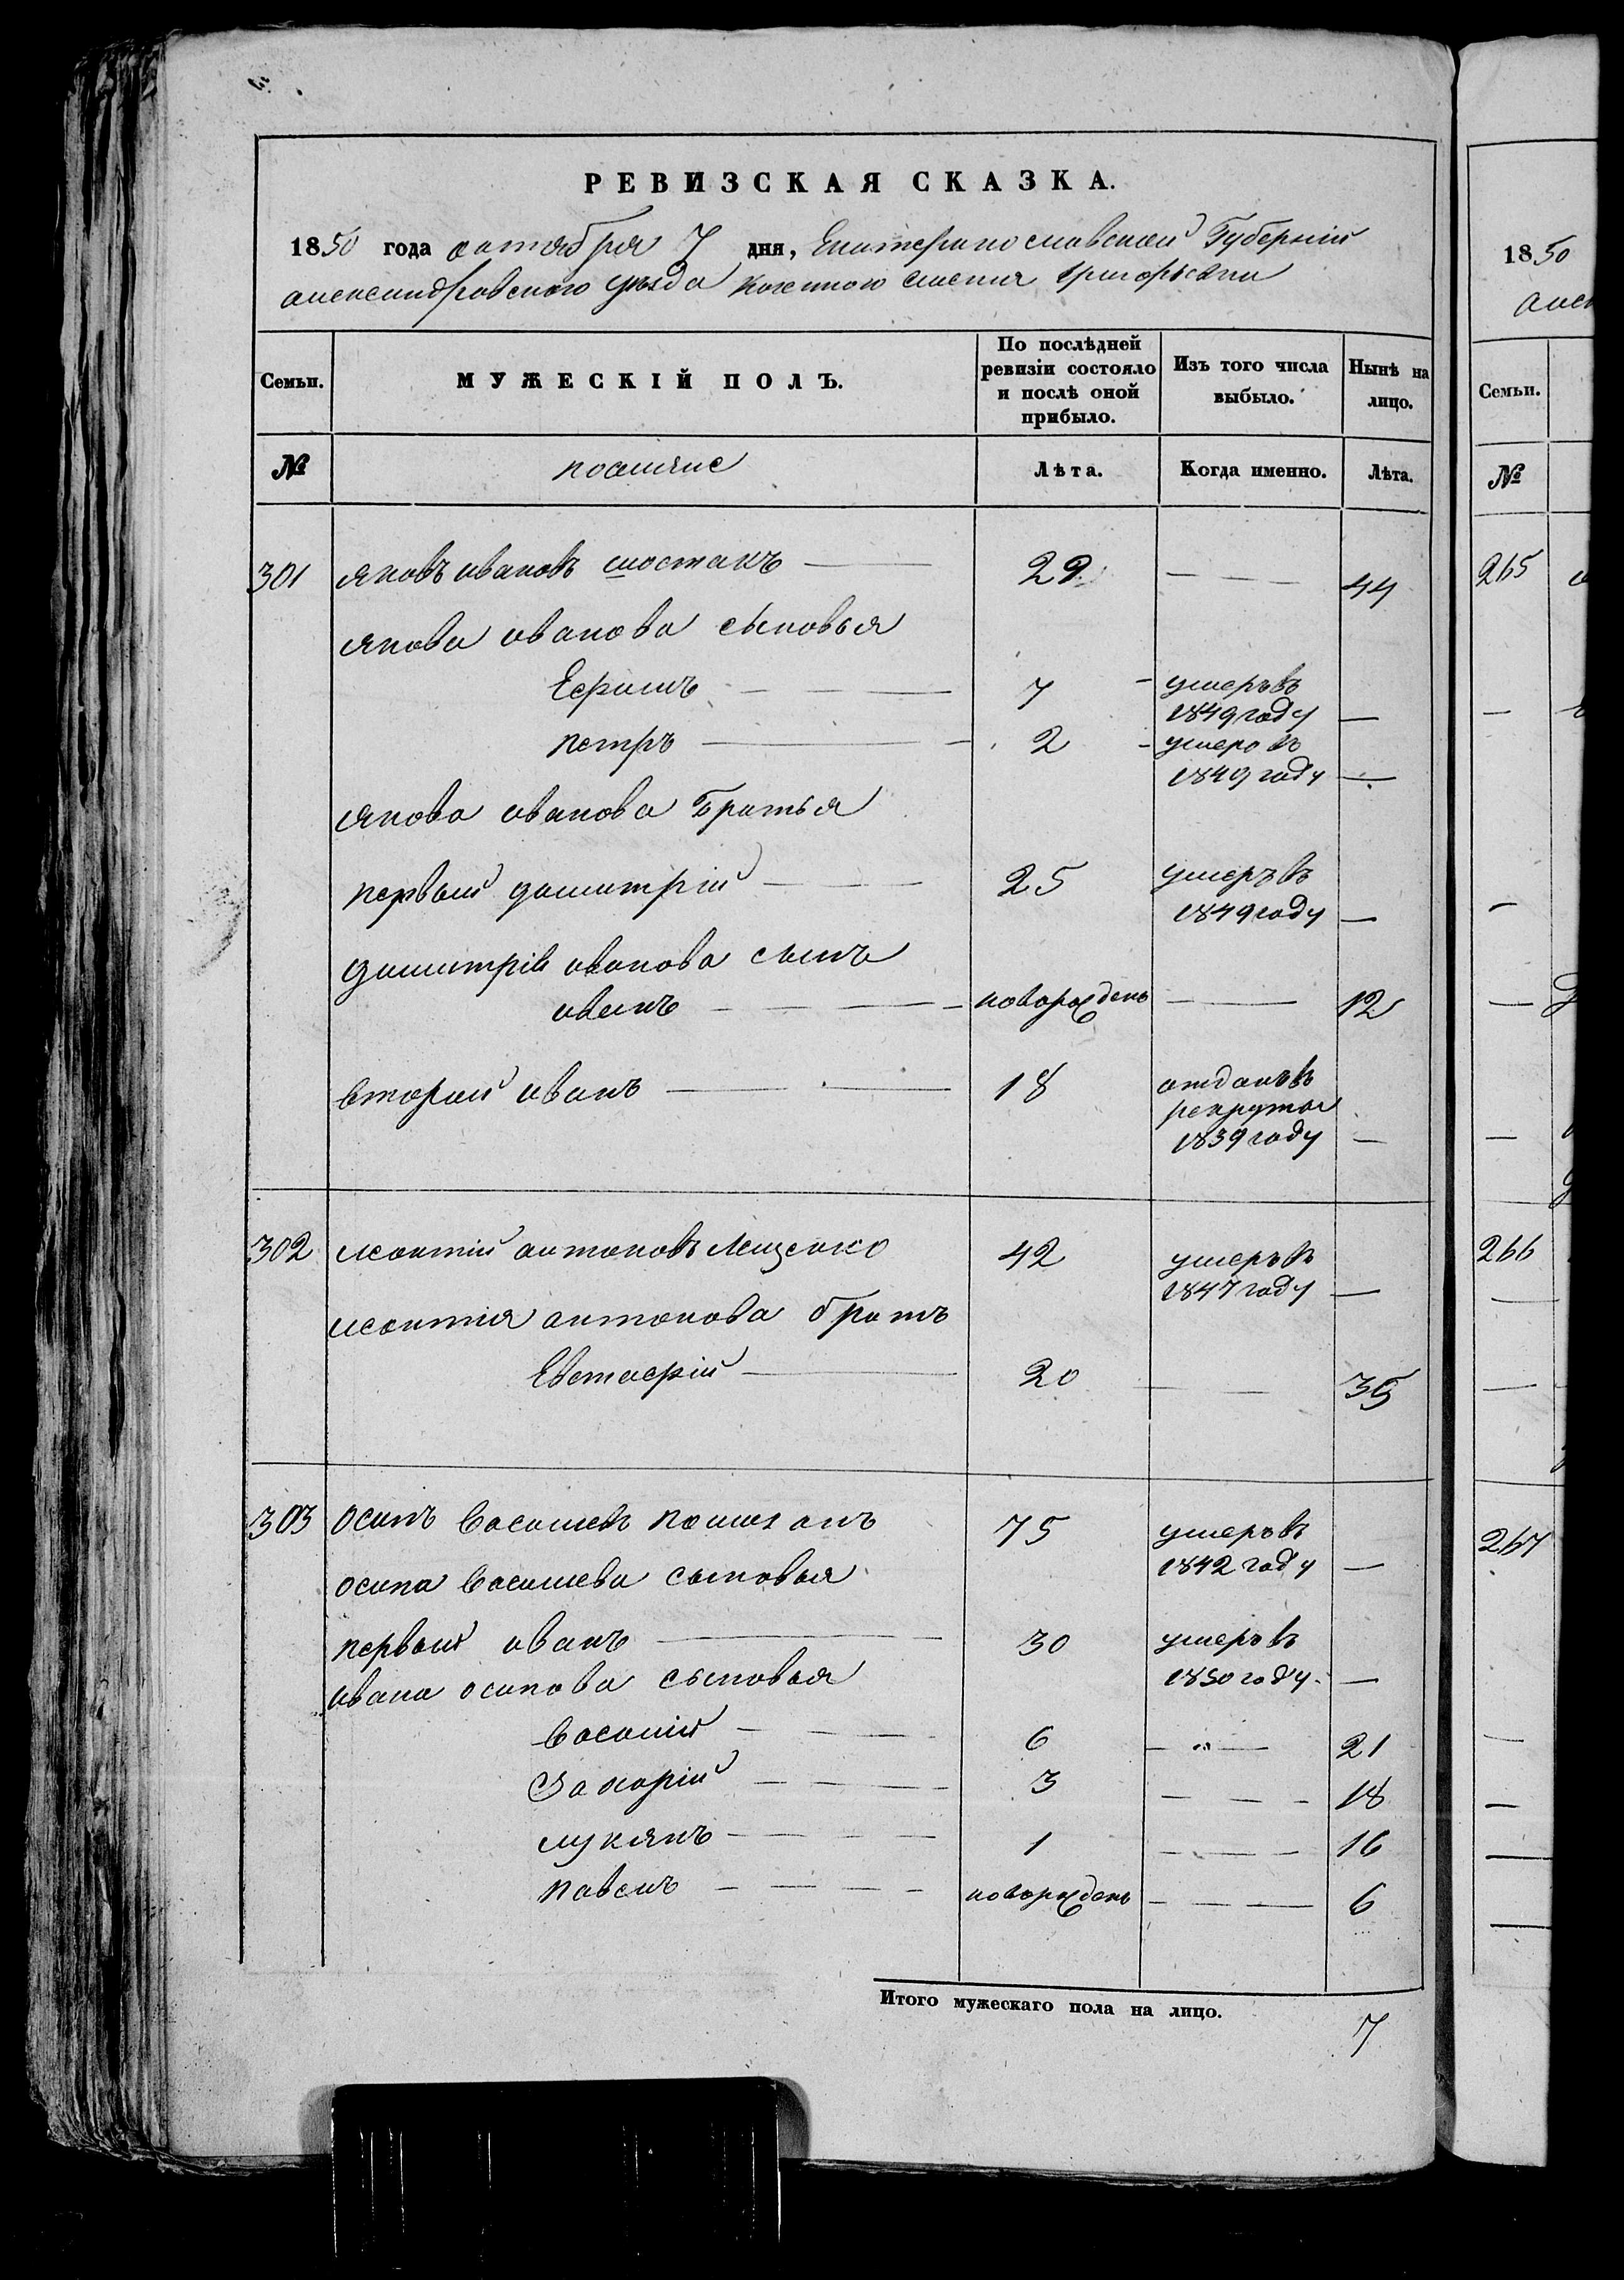 РЕВИЗСКАЯ СКАЗКА.
1850 года октября 7 дня, Екатеринославской Губерніи
александровского уѣзда казенного селения Григорьевки
Семьи.
МУЖЕСКІЙ ПОЛЪ.
По послѣдней ревизіи состояло и послѣ оной прибыло.
Изъ того числа выбыло.
Нынѣ на лицо.
№
поселяне
Лѣта.
Когда именно.
Лѣта.
301 яковъ ивановъ шостакъ 29 44
якова иванова сыновья
Ефимъ 7 умеръ въ 1849 году
петръ 2 умеръ въ 1849 году
якова иванова братья
первый димитрій 25 умеръ въ 1849 году
димитрія иванова сынъ
иванъ новорожденъ 12
вторый иванъ 18 отданъ въ рекруты 1839 году
302 леонтій антоновъ Лещенко 42 умеръ въ 1847 году
леонтия антонова братъ
Евстафій 20 35
303 осипъ василиевъ 75 умеръ въ 1842 году
осипа василиева сыновья
первый иванъ 30 умеръ въ 1850 году
ивана осипова сыновья
василий 6 21
Захарій 3 18
лукянъ 1 16
павелъ новорожденъ 6
Итого мужескаго пола на лицо.
7
1850
Семьи.
№
265
266
267